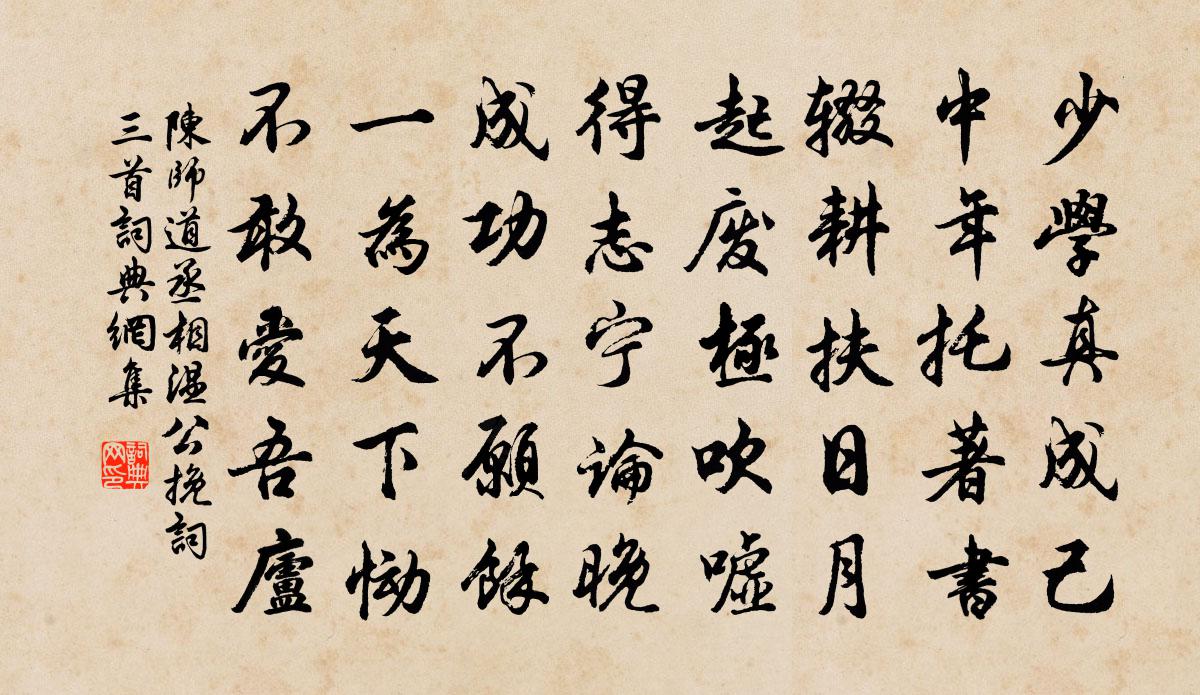 少學真成己
中年托著書
輟耕扶日月
起廢極吹噓
得志宁論晚
成功不願餘
一為天下慟
不敢愛吾廬
陳師道丞相溫公挽詞
三首詞典網集
詞典网印